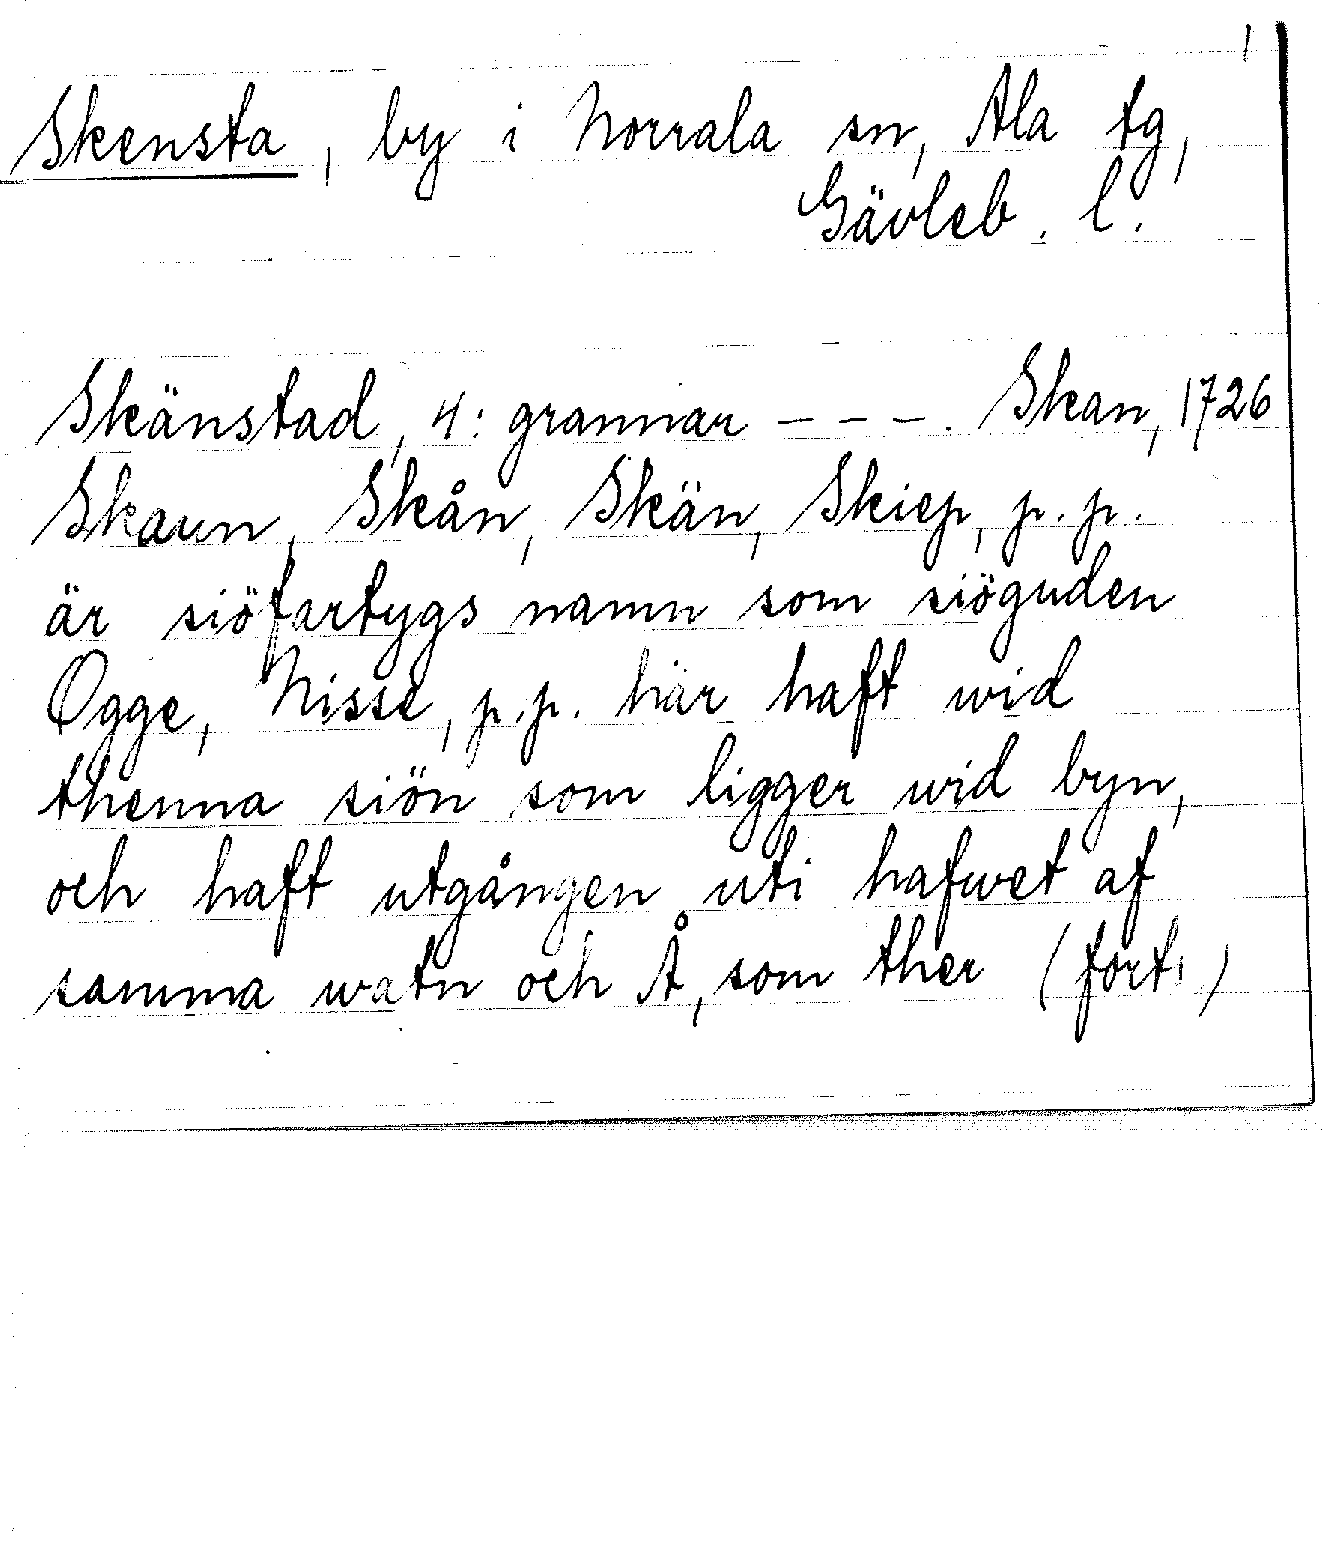 1
Skensta, by i Norrala sn, Ala tg,
Gävleb. l.
Skänstad, 4: grannar – – –. Skan, 1726
Skaun, Skån, Skän, Skiep, p.p.
är siöfartygs namn som siöguden
Ogge, Nisse, p.p. här haft wid
thenna siön som ligger wid byn,
och haft utgången uti hafwet af
samma watn och Å, som ther (forts)